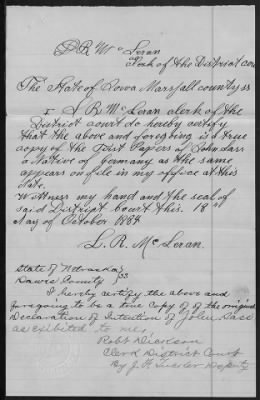 L R McLeran
Clerk of the District Cou
The State of Iowa Marshall county ss
I L R McLeran clerk of the
District court do hereby certify
that the above and foregoing is a true
copy of the First Papers of John Lass
a Native of Germany as the same
appears on file in my office at this
date.
Witness my hand and the seal of
said District court this. 18
day of October 1884
L. R. McLeran.
State of Nebraska
Dawes County } ss
I hereby certify the above and
foregoing to be a true Copy of of the original
Declaration of Intention of John Lass
as exibited to me,
Robt Dickson
Clerk District Court
By J. H. Deputy